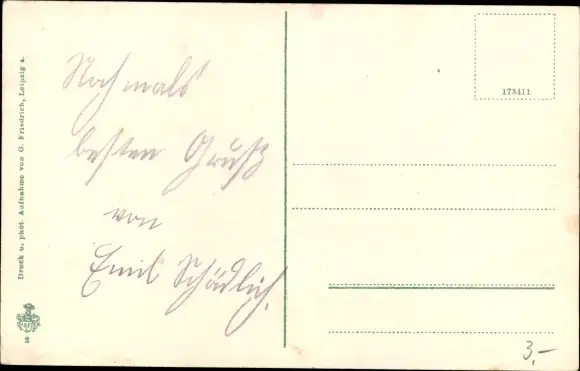 Druck u. phot Aufnahme von G. Friedrich, Leipzig 4.
10
Nochmals
besten Gruß
von
Emil Schädlich.
173411
3.-